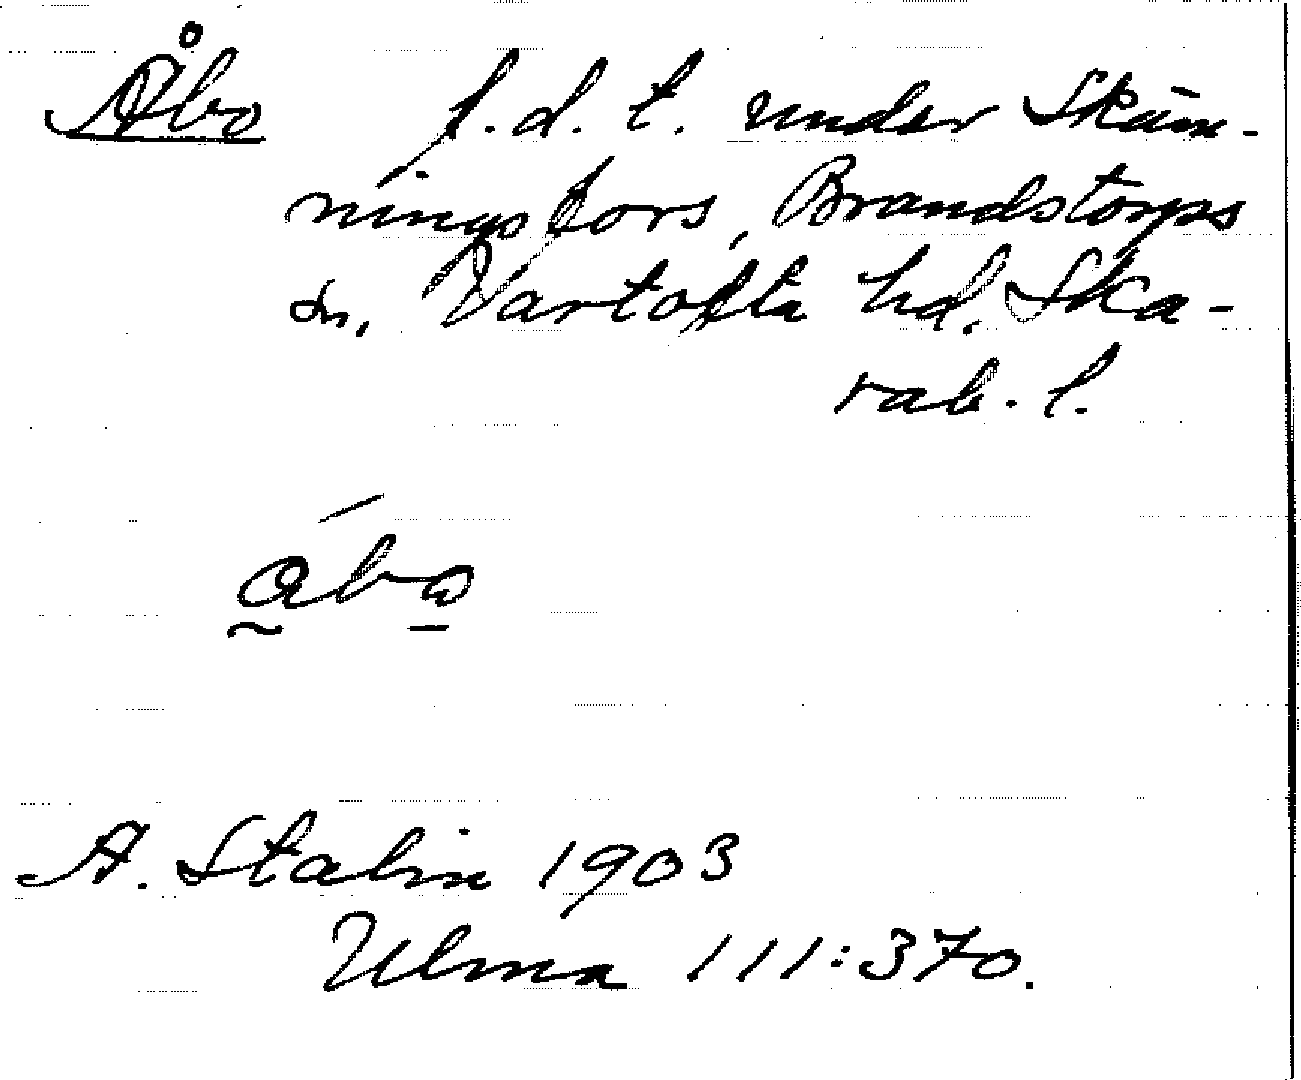 Åbo f.d.t. under Skäm-
ningsfors, Brandstorps
sn, Vartofta hd. Ska-
rab. l.
åbo
A. Stalin 1903
Ulma 111:370.